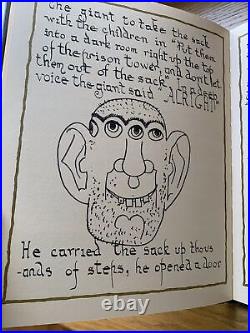 the giant to take the sack
with the children in "Put them
into a dark room right up the top
of the prison tower, and don't let
them out of the sack" - a deep
voice the giant said "ALRIGHT"
He carried the sack up thous
-ands of steps, he opened a door